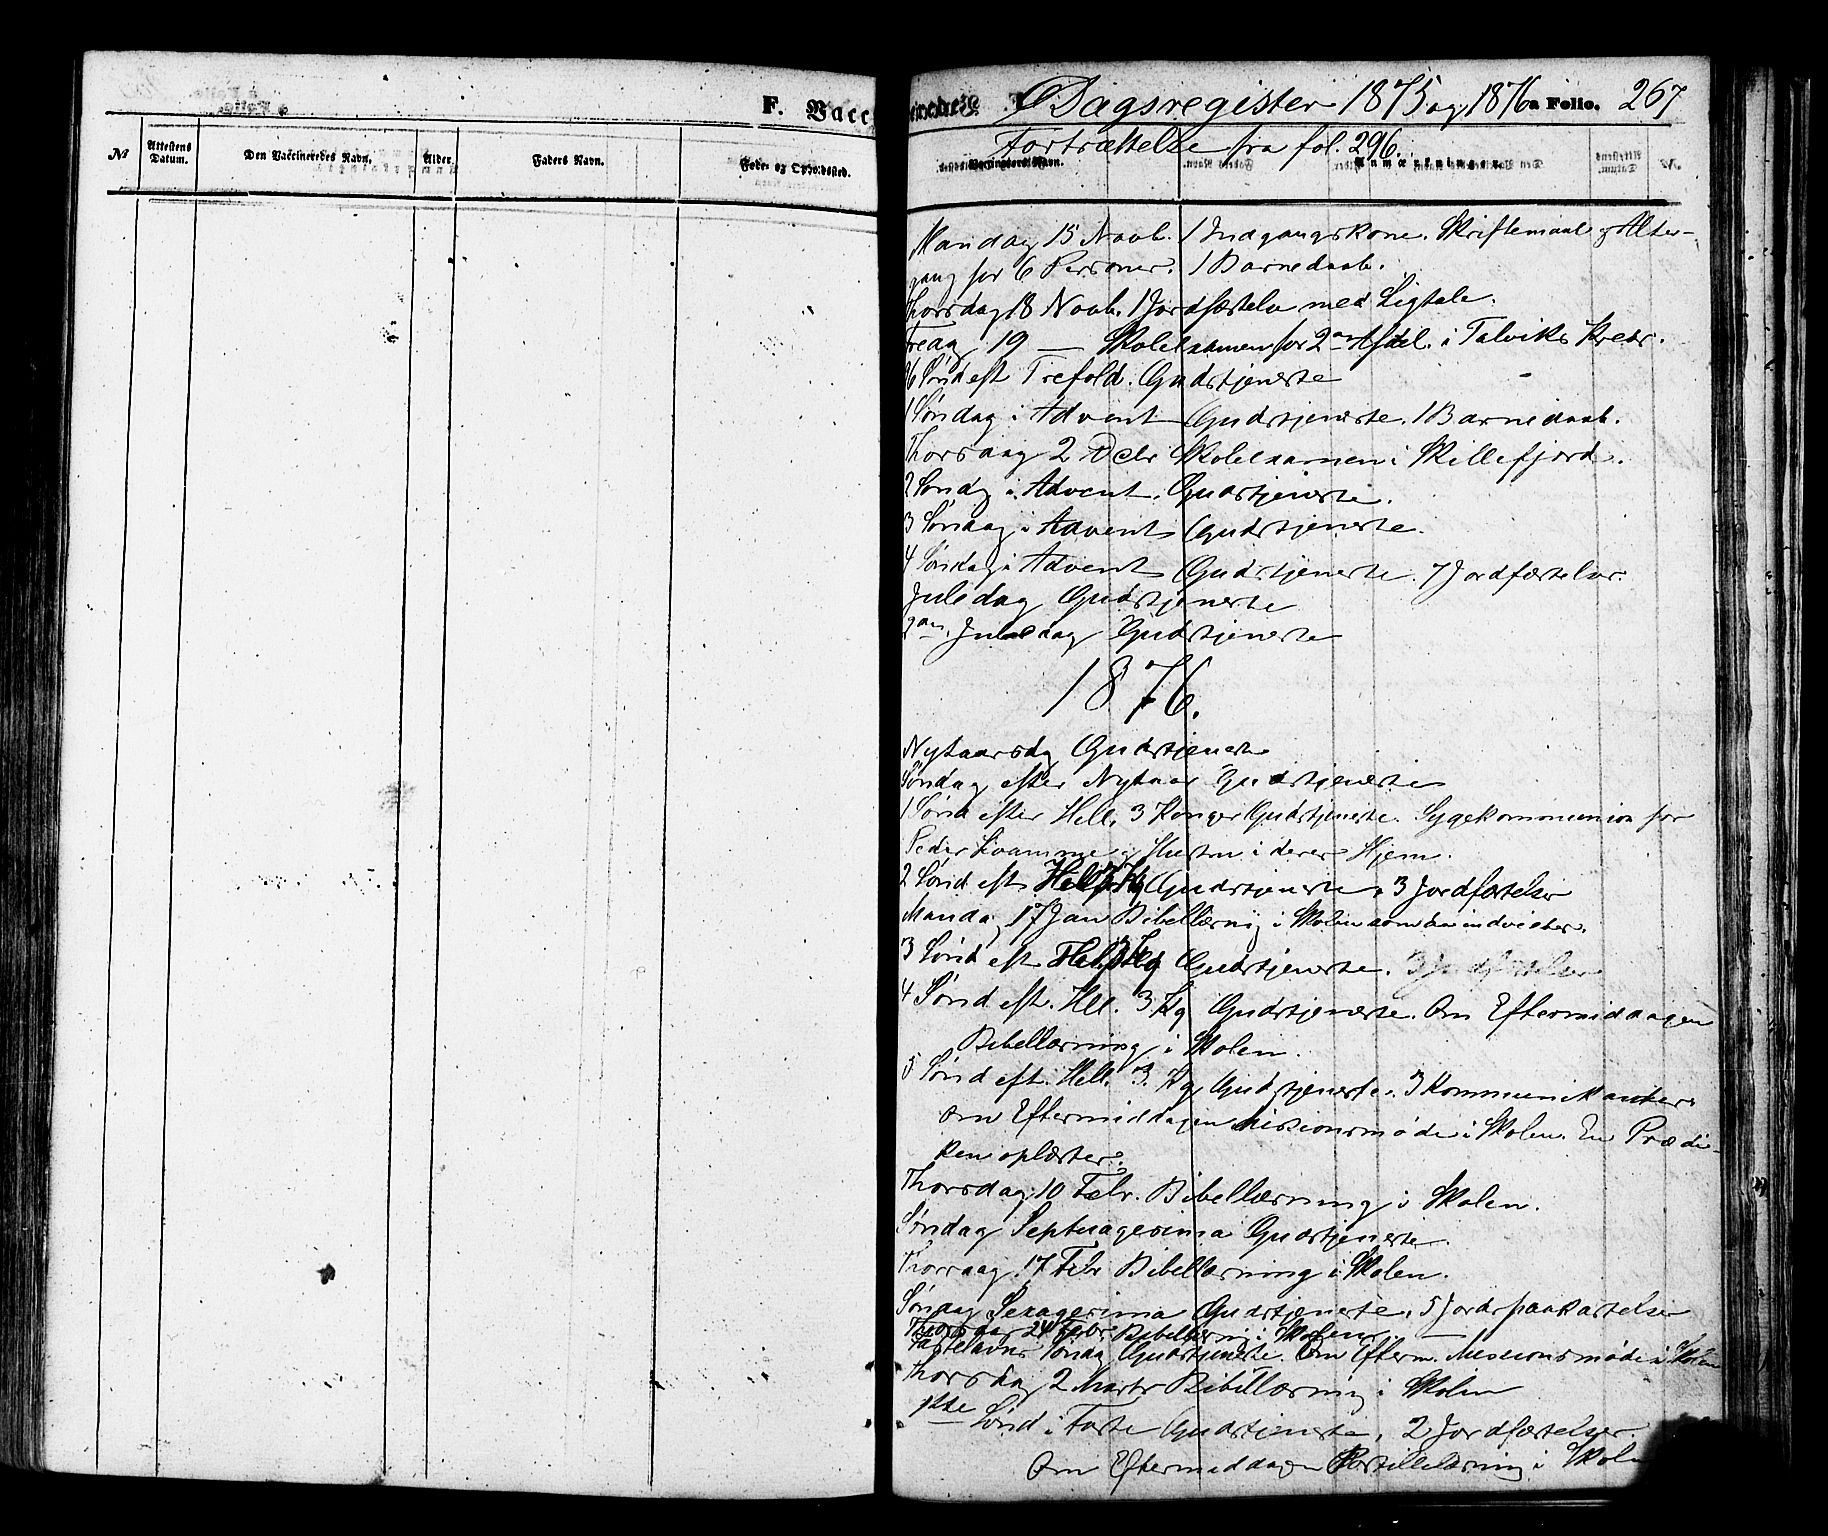 F. Vacc
№
Attestens Datum.
Den Vaccineredes Navn.
Alder.
Faders Navn.
Føde- og Opholdssted.
Dagsregister 1875 og 1876 a Folio. 267
Fortsættelse fra fol. 296.
Mandag 15 Novb. 1 Indgangskone. Skriftemaal og Alter-
gang for 6 Personer. 1 Barnedaab.
Thorsdag 18 Novb. 1 Jordfæstelse med Ligtale.
Fredag 19 — Skolexamen for 2den Afdel. i Talviks Kreds.
26 Sønd eft Trefold. Gudstjeneste
1 Søndag i Advent Gudstjeneste. 1 Barnedaab.
Thorsdag 2 Decbr Skolexamen i Skillefjord.
2 Søndg i Advent. Gudstjeneste.
3 Søndag i Advent Gudstjeneste.
4 Søndag i Advent Gudstjeneste. 7 Jordfæstelser.
Juledag Gudstjeneste
2den Juledag Gudstjeneste
1876.
Nytaarsdg Gudstjeneste
Søndag efter Nytaar Gudstjeneste
1 Sønd efter Hell. 3 Konger Gudstjeneste. Sygekommunion for
Peder Kvamme og Hustru i deres Hjem.
2 Sønd eft Hell 3 Kg Gudstjeneste. 3 Jordfæstelser
Mandag 17 Jan Bibellæsnig i Skolen som indvies.
3 Sønd eft Hel. 3 Kg Gudstjeneste. 3 Jordfæstelser
4 Sønd eft. Hell. 3 Kg Gudstjeneste. Om Eftermiddagen
Bibellæsning i Skolen.
5 Sønd eft. Hell. 3. Kg Gudstjeneste. 3 Kommunikanter.
Om Eftermiddagen Missionsmøde i Skolen. En Prædi-
ken oplæstes.
Thorsdag 10 Febr. Bibellæsning i Skolen.
Søndag Septuagesima Gudstjeneste.
Thorsdag 17 Febr Bibellæsning i Skolen.
Søndag Sexagesima Gudstjeneste. 5 Jordspaakastelser
Thorsdag 24 Febr Bibellæsnig i Skolen.
Fastelavns Søndag Gudstjeneste. Om Efterm. Missionsmøde i Skolen
Thorsdag 2 Marts Bibellæsning i Skolen
1ste Sønd i Faste Gudstjeneste. 2 Jordfæstelser.
Om Eftermiddagen Postillelæsning i Skolen